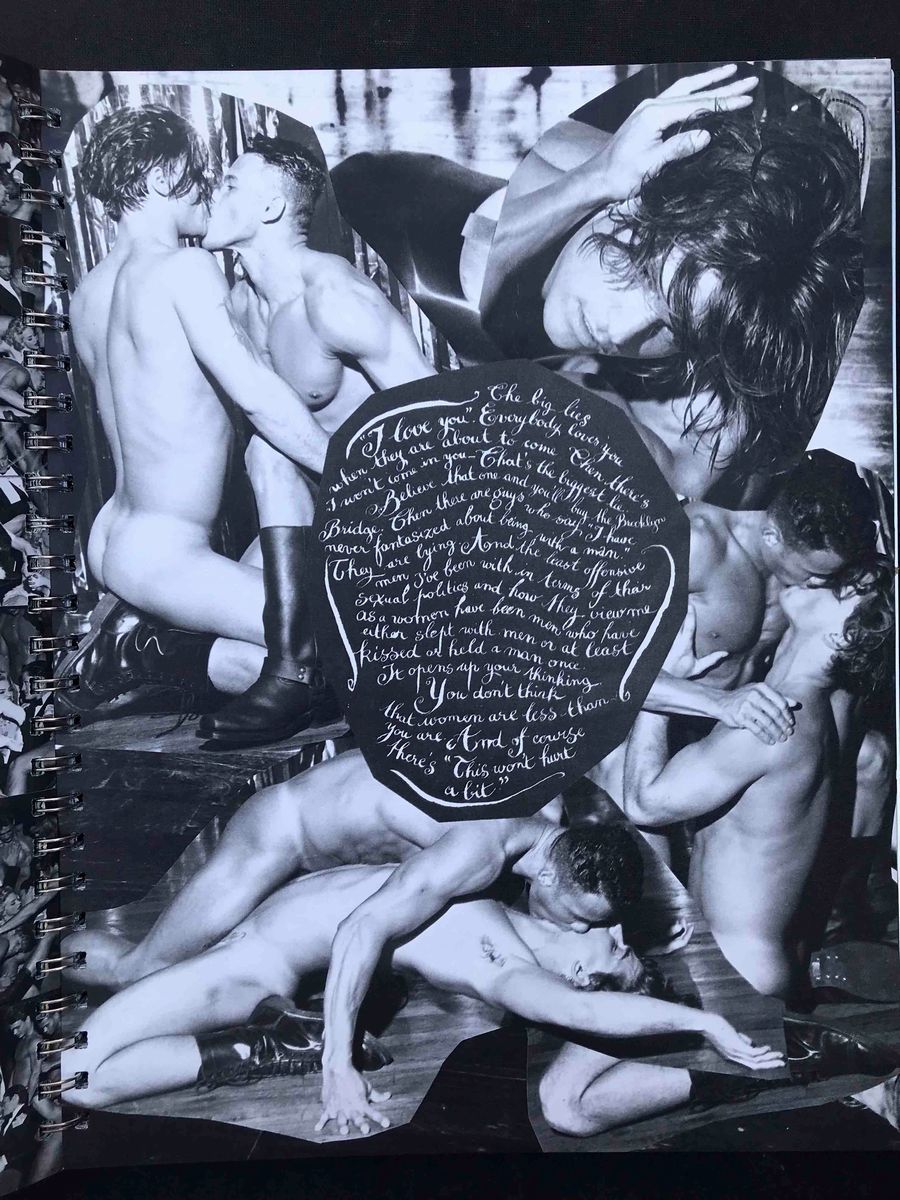 The big lies
"I love you". Everybody loves you
when they are about to come Then there's
I won't come in you_ That's the biggest lie.
Believe that one and you'll buy the Brooklyn
Bridge. Then there are guys who say, "I have
never fantasized about being with a man"
They are lying And the least offensive
men I've been with in terms of their
sexual politics and how they view me
as a women have been men who have
either slept with men or at least
kissed or held a man once.
It opens up your thinking
You don't think
that women are less than
you are And of course
there's "This won't hurt
a bit."